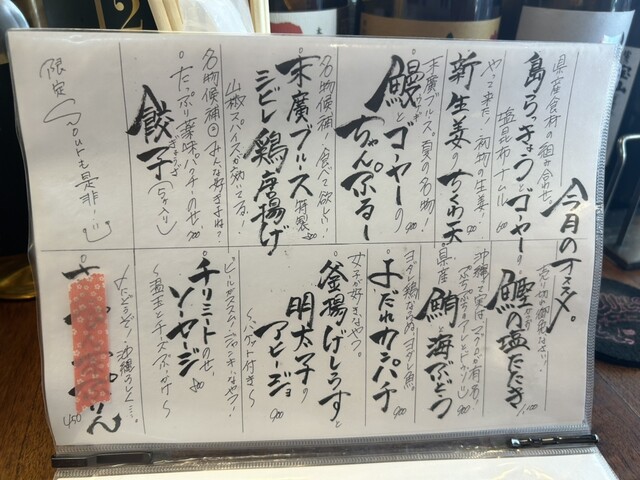 今月のオススメ。
県産食材の組み合わせ。
島らっきょうとゴーヤーの
塩昆布ナムル
やって来た!初物の生姜。
新生姜のちくわ天
900
末廣ブルース夏の名物!
鰻とゴーヤーの
ちゃんぷるー
900
名物候補!食べて欲しい!
末廣ブルース特製
シビレ鶏唐揚げ
山椒スパイスが効いてる!
名物候補② みんな好きよね?
たっぷり薬味パクチーのせ。
餃子(5ヶ入り)
限定Tourも是非!!
売り切れ御免なさい!
鰹の塩たたき
1,100
沖縄って実はマグロが有名。
県産
鮪と海ぶどう
900
ヨダレ鶏ならぬ、ヨダレ魚。
よだれカンパチ
900
女子が好きなやつ。
釜揚げしらすと
明太子の
アヒージョ
900
〜バケット付き〜
ビールがススム!ジャンキーなやつ!
チリミートのせ、
ソーセージ
〜温玉とチーズぶっかけ〜
450